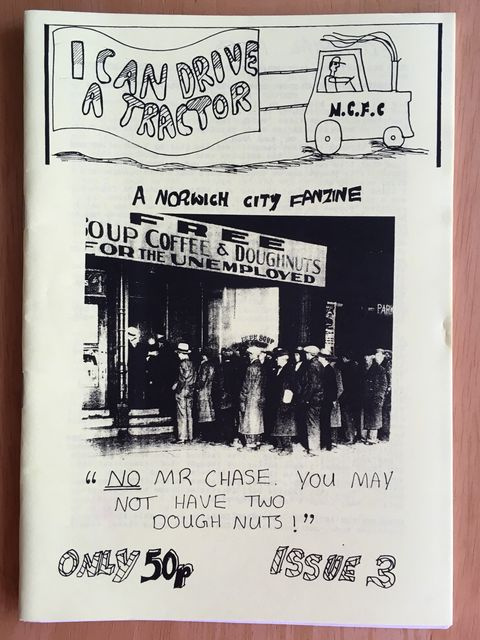 I CAN DRIVE
A TRACTOR
N.C.F.C
A NORWICH CITY FANZINE
FREE
SOUP COFFEE & DOUGHNUTS
FOR THE UNEMPLOYED
FREE SOUP
PARK
“NO MR CHASE. YOU MAY
NOT HAVE TWO
DOUGH NUTS!”
ONLY 50p
ISSUE 3